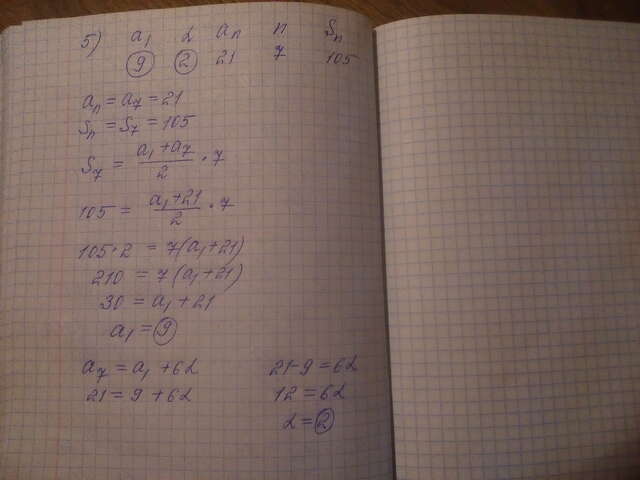 5) a₁ d aₙ n Sₙ
9 2 21 7 105
aₙ = a₇ = 21
Sₙ = S₇ = 105
S₇ = (a₁ + a₇)/2 · 7
105 = (a₁ + 21)/2 · 7
105 · 2 = 7(a₁ + 21)
210 = 7(a₁ + 21)
30 = a₁ + 21
a₁ = 9
a₇ = a₁ + 6d
21 = 9 + 6d
21 - 9 = 6d
12 = 6d
d = 2